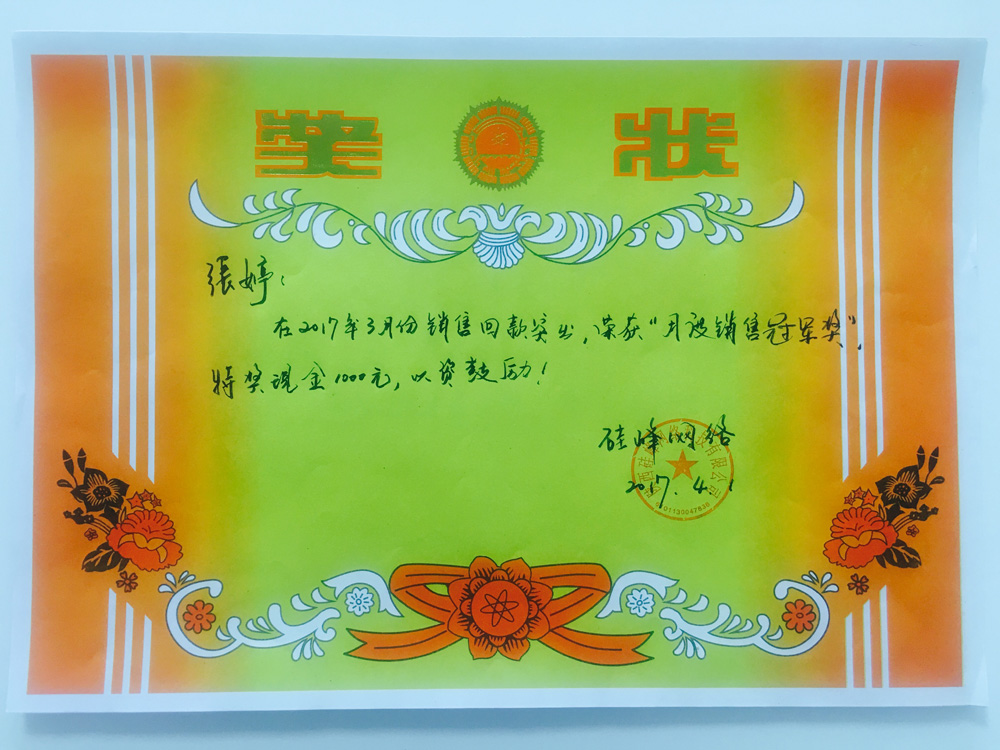 奖 状
张婷：
在2017年3月份销售回款突出，荣获“月度销售冠军奖”，
特奖现金1000元，以资鼓励！
硅峰网络
2017.4.1